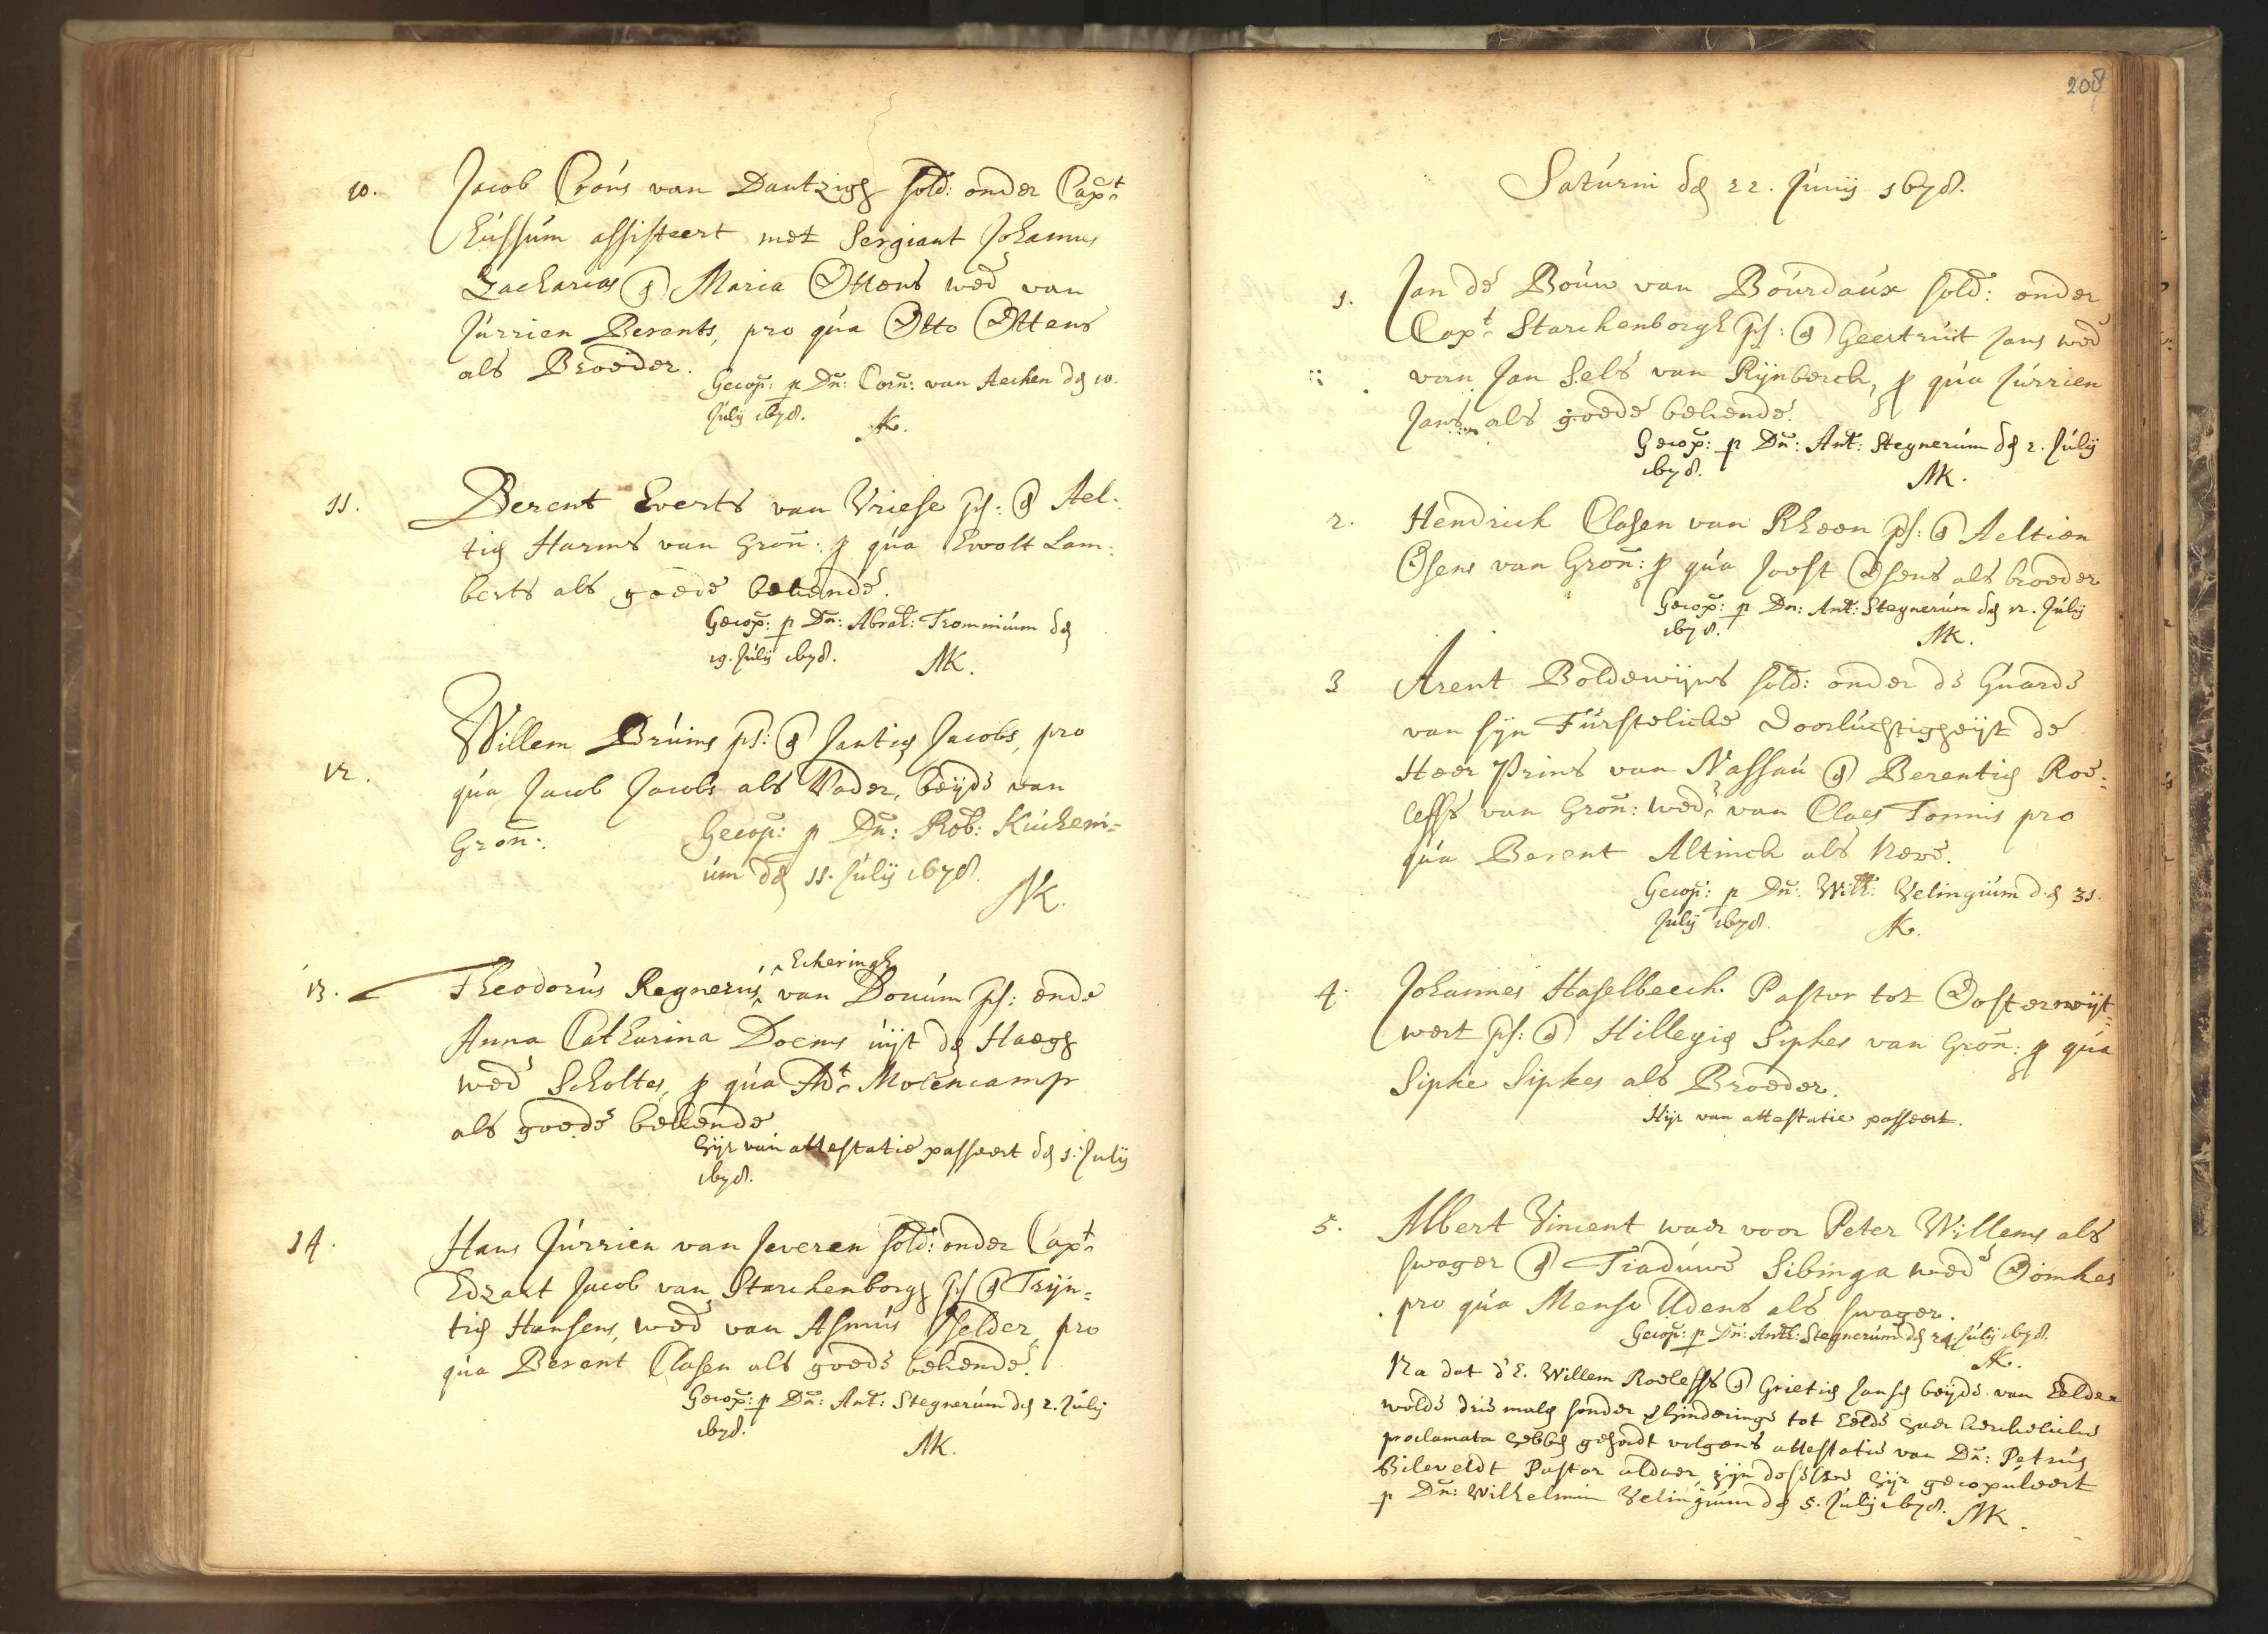 10. Jacob Crons van Dantzigh sold: onder Capt:
Eussum assisteert met Sergiant Johannes
Zacharias & Maria Ottens wed van
Jurrien Berents, pro qua Otto Ottens
als Broeder.
Gecop: p Dn: Corn: van Aechen den 10.
July 1678. AK.
11. Berent Everts van Vriese ps: & Ael-
tien Harms van Gron: p qua Evolt Lam-
berts als goede bekende.
Gecop: p Dn: Abrah: Trommium den
19. July 1678. AK.
12. Willem Bruins ps: & Jantien Jacobs, pro
qua Jacob Jacobs als Vader, beyde van
Gron:. Gecop: p Dn: Rob: Kucheni-
um den 11. July 1678.
AK.
13. Theodorus Regnerus Echeringh van Donum ps: ende
Anna Catharina Doems uyt den Haegh
wed Scholtes, p qua Adt: Molencamp
als goede bekende
hijr van attestatie passeert den 1. July
1678.
14. Hans Jurrien van Jeveren sold: onder Capt:
Edzart Jacob van Starckenborgh ps & Trijn-
tien Hansens, wed van Asmus Velder, pro
qua Berent Clasen als goede bekende.
Gecop: p Dn: Ant: Stegnerum den 2. July
1678. AK.
208
Saturni den 22. Junij 1678.
1. Jan de Bouw van Bourdaux sold: onder
Capt: Starckenborgh ps: & Geertruit Jans wed
van Jan Sels van Rijnberck, p qua Jurrien
Jans als goede bekende.
Gecop: p Dn: Ant: Stegnerum den 2. July
1678. AK.
2. Hendrick Clasen van Rheen ps: & Aeltien
Osens van Gron: p qua Joost Osens als broeder
Gecop: p Dn: Ant: Stegnerum den 12. July
1678. AK.
3 Arent Boldewijns sold: onder de Guarde
van sijn Furstelicke Doorluchtigheijt de
Heer Prins van Nassau & Berentien Roe-
leffs van Gron: wed: van Claes Tonnis pro
qua Berent Altinck als Neve.
Gecop: p Dn: Wilh: Velingium den 31.
July 1678. AK.
4. Johannes Haselbeeck Pastor tot Oosterwijt-
wert ps: & Hillegien Sipkes van Gron: p qua
Sipke Sipkes als Broeder.
Hijr van attestatie passeert.
5. Albert Vincent waer voor Peter Willems als
swager & Tiaduwe Sibinga wed Oomkes
pro qua Menso Udens als swager.
Gecop: p Dn: Anth: Stegnerum den 24 July 1678.
AK.
Na dat d'E. Willem Roeleffs & Grietien Jansen beyde van Eelde-
wolde driemalen sonder hinderinge tot Eelde haer kerckelicke
proclamata hebben gehadt volgens attestatie van Dn: Petrus
Bileveldt Pastor aldaer, zijn deselve hijr gecopuleert
p Dn: Wilhelmin Velingium den 5. July 1678. AK.